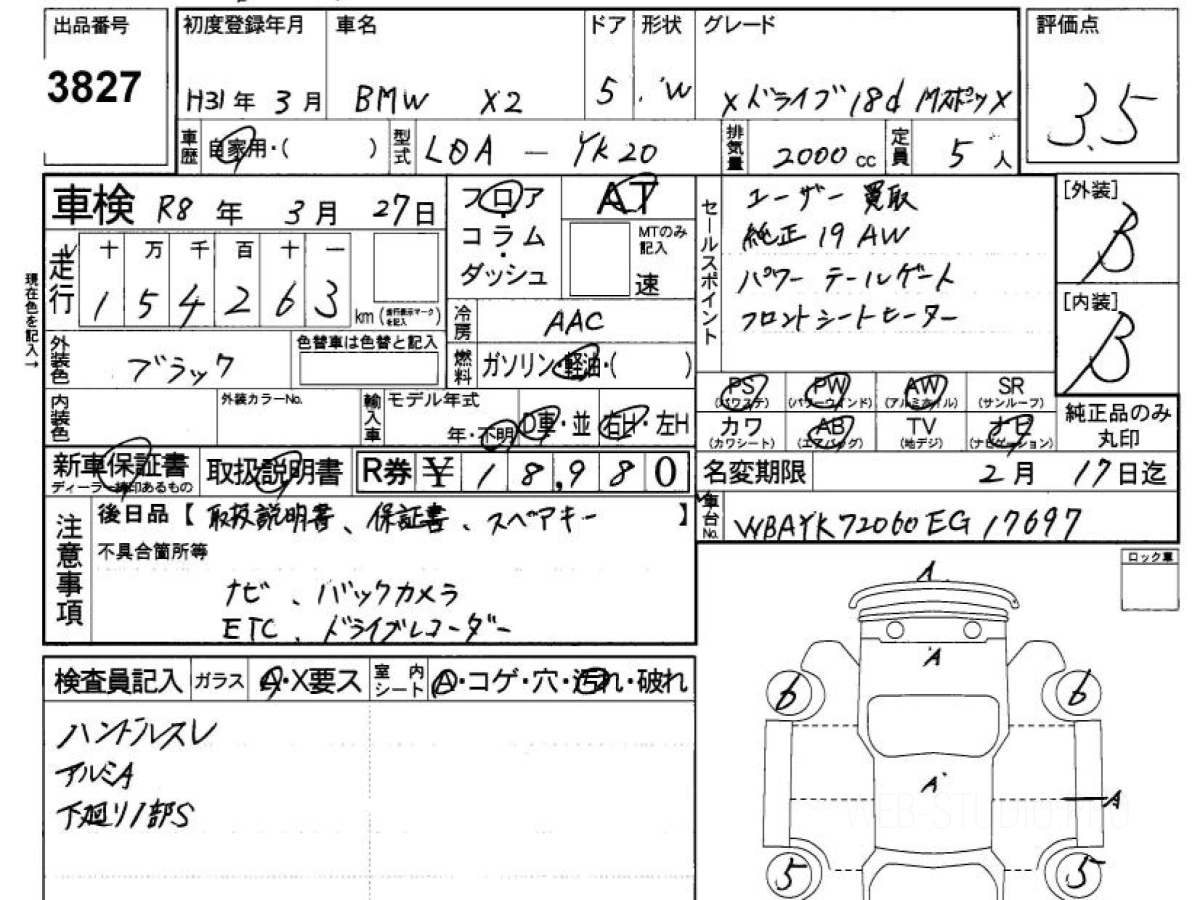 出品番号
3827
初度登録年月
H31年 3月
車名
BMW X2
ドア
5
形状
W
グレード
Xドライブ18d MスポーツX
評価点
3.5
車歴
自家用・( )
型式
LDA - YK20
排気量
2000 cc
定員
5人
車検 R8年 3月 27日
走行
十 万 千 百 十 一
1 5 4 2 6 3
km (走行表示マークを記入)
現在色を記入→
外装色
ブラック
色替車は色替と記入
内装色
外装カラーNo.
輸入車
モデル年式
年・不明
D車・並
右H・左H
フロア
コラム
ダッシュ
AT
MTのみ記入
速
冷房
AAC
燃料
ガソリン・軽油・( )
セールスポイント
ユーザー買取
純正19AW
パワーテールゲート
フロントシートヒーター
[外装]
B
[内装]
B
PS
(パワステ)
PW
(パワーウインド)
AW
(アルミホイル)
SR
(サンルーフ)
カワ
(カワシート)
AB
(エアバッグ)
TV
(地デジ)
ナビ
(ナビゲーション)
純正品のみ
丸印
新車保証書
ディーラー捺印あるもの
取扱説明書
R券 ¥ 18,980
名変期限 2月 17日迄
車台No.
WBAYK72060EG17697
注意事項
後日品【取扱説明書、保証書、スペアキー】
不具合箇所等
ナビ、バックカメラ
ETC、ドライブレコーダー
ロック車
検査員記入
ガラス
A・X要ス
室内シート
A・コゲ・穴・汚れ・破れ
ハンドルスレ
アルミA
下廻り1部S
A
A
6
6
A
A
WEB-STUDIO.PRO
5
5